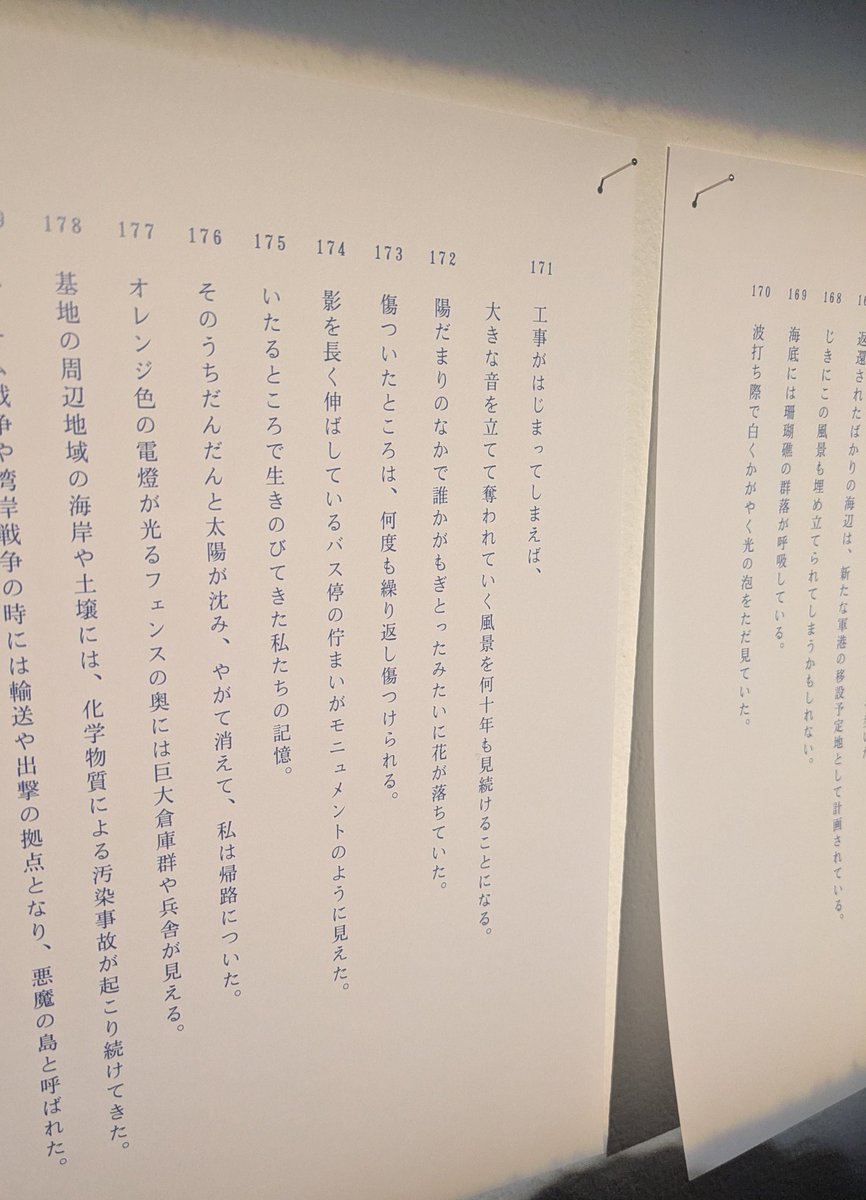 返還されたばかりの海辺は、新たな軍港の移設予定地として計画されている。
168 じきにこの風景も埋め立てられてしまうかもしれない。
169 海底には珊瑚礁の群落が呼吸している。
170 波打ち際で白くかがやく光の泡をただ見ていた。
171 工事がはじまってしまえば、
大きな音を立てて奪われていく風景を何十年も見続けることになる。
172 陽だまりのなかで誰かがもぎとったみたいに花が落ちていた。
173 傷ついたところは、何度も繰り返し傷つけられる。
174 影を長く伸ばしているバス停の佇まいがモニュメントのように見えた。
175 いたるところで生きのびてきた私たちの記憶。
176 そのうちだんだんと太陽が沈み、やがて消えて、私は帰路についた。
177 オレンジ色の電燈が光るフェンスの奥には巨大倉庫群や兵舎が見える。
178 基地の周辺地域の海岸や土壌には、化学物質による汚染事故が起こり続けてきた。
戦争や湾岸戦争の時には輸送や出撃の拠点となり、悪魔の島と呼ばれた。